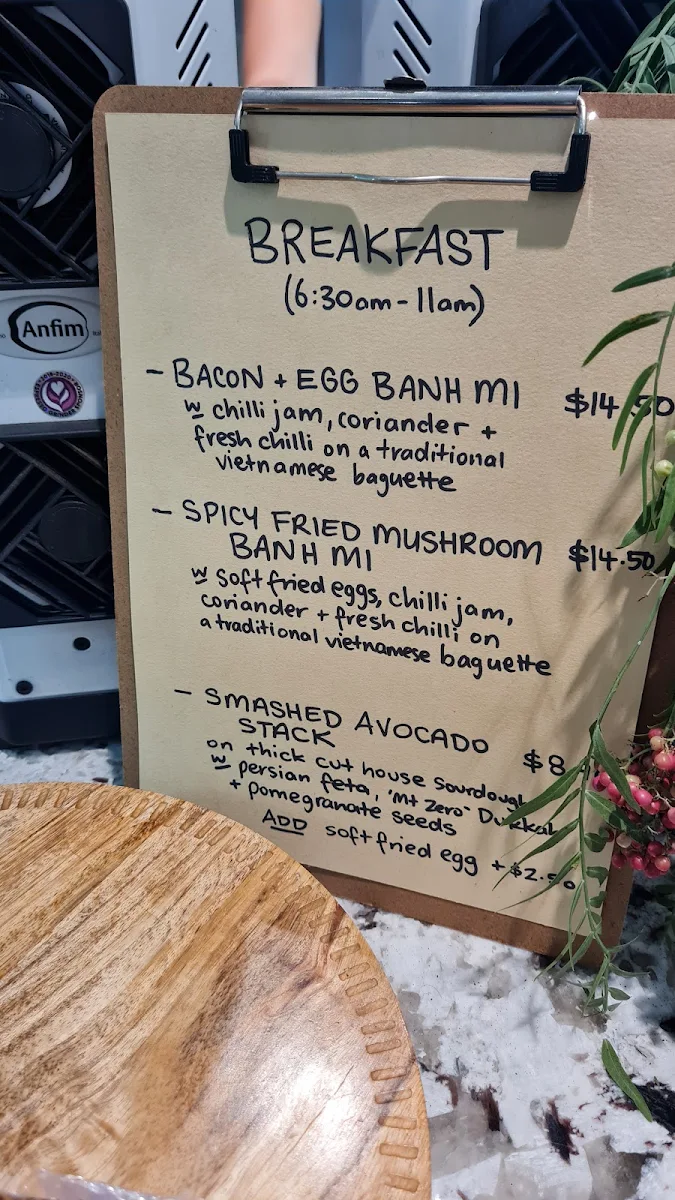 BREAKFAST
(6:30am-11am)
- BACON + EGG BANH MI $14.50
w chilli jam, coriander +
fresh chilli on a traditional
vietnamese baguette
- SPICY FRIED MUSHROOM
BANH MI $14.50
w soft fried eggs, chilli jam,
coriander + fresh chilli on
a traditional vietnamese baguette
- SMASHED AVOCADO
STACK $8
on thick cut house sourdough
w persian feta, "Mt Zero" Dukkah
+ pomegranate seeds
ADD soft fried egg +$2.50
Anfim